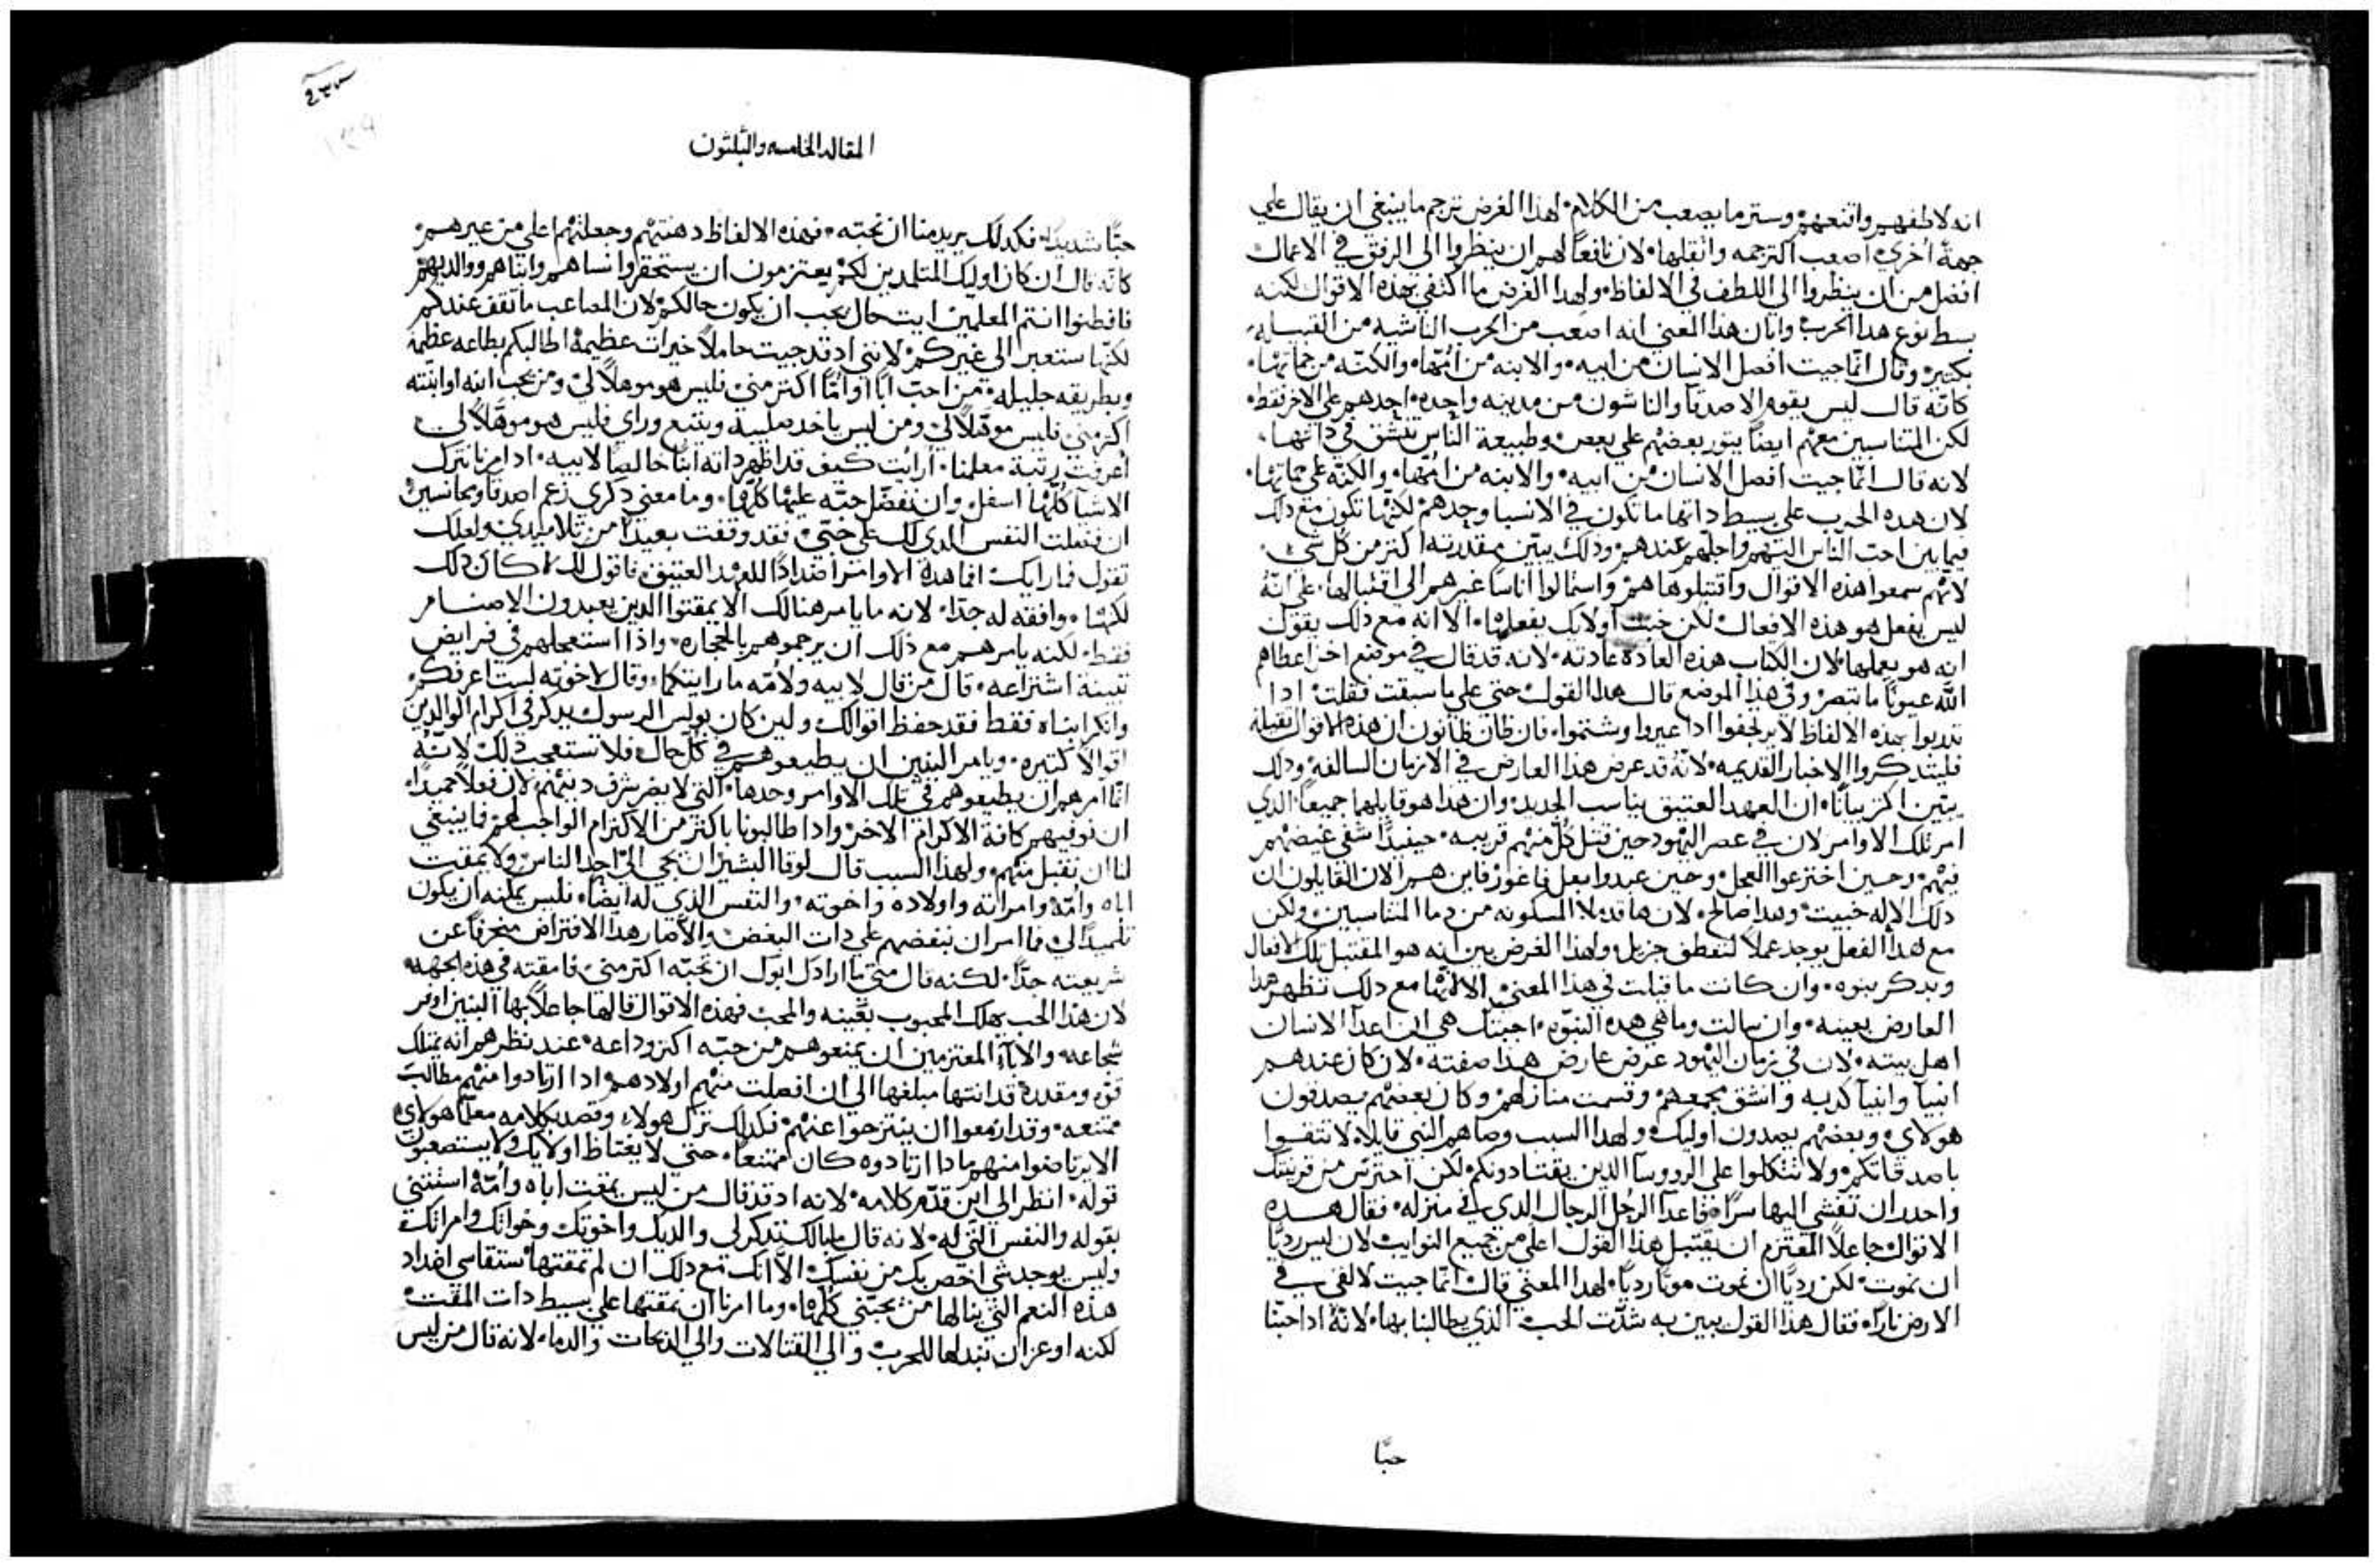 انه لاطفهم واقنعهم وستر ما يصعب من الكلام لهذا الغرض ترجم ما ينبغي ان يقال علي
جهة اخري اصعب اكترجمه واثقلها لان نافعاً لهم ان ينظروا الى الرفق في الاعمال
افضل من ان ينظروا الي اللطف في الالفاظ ولهدا الغرض ما اكتفي بهذه الاقوال لكنه
بسط نوع هدا الحرب وابان هدا المعني انه اصعب من الحرب الناشيه من القبيله
بكتير وقال انما جيت افصل الانسان من ابيه والابنه من امها والكنه من حماتها
كانه قال ليس يقوم الاصدقا والناشون من مدينه واحده احدهم علي الاخر فقط
لكن المتناسبين معهم ايضاً يتور بعضهم علي بعض وطبيعة الناس تنشق في داتها
لانه قال انما جيت افصل الانسان من ابيه والابنه من امها والكنه علي حماتها
لان هده الحرب علي بسيط داتها ما تكون في الانسبا وحدهم لكنها تكون مع دلك
فيما بين احب الناس اليهم واجلهم عندهم ودلك يبين مقدرته اكتر من كل شي
لانهم سمعوا هذه الاقوال واقتبلوها هم واستمالوا اناساً غيرهم الى اقتبالها علي انه
ليس يفعل هو هذه الافعال لكن خبث اولايك يفعلها الا انه مع ذلك يقول
انه هو يعملها لان الكتاب هذه العادة عادته لانه قد قال في موضع اخر اعطاهم
الله عيوناً ما تبصر وفي هذا الموضع قال هدا القول حتى علي ما سبقت فقلت ادا
تدربوا بهذه الالفاظ لا يرتجفوا ادا عيروا وشتموا فان ظان ظانون ان هذه الاقوال ثقيلة
فليتدكروا الاخبار القديمه لانه قد عرض هذا العارض في الازمان السالفه ودلك
يبين اكثر بياناً ان العهد العتيق يناسب الجديد وان هدا هو قايلهما جميعاً الدي
امر تلك الاوامر لان في عصر اليهود حين قتل كل منهم قريبه حينيداً شفى غيضهم
فيهم وحين اخترعوا العجل وحين عبدوا بعل فاغور فاين هم الان القايلون ان
دلك الاله خبيث وهدا صالح لان ها قد ملا المسكونه من دما المتناسبين ولكن
مع هدا الفعل يوجد عملاً لتعطف جزيل ولهذا الغرض يبين انه هو المقتبل تلك الافعال
ويدكر بنوه وان كانت ما قيلت في هذا المعني الا انها مع دلك تظهر هدا
العارض بعينه وان سالت وما هي هده النبوه اجبتك هي ان اعدا الانسان
اهل بيته لان في زمان اليهود عرض عارض هدا صفته لان كان عندهم
انبيا وانبيا كدبه وانشق مجمعهم وقسمت منازلهم وكان بعضهم يصدقون
هولاي وبعضهم يصدون اوليك ولهدا السبب وصاهم النبي قايلاً لا تتقوا
باصدقاتكم ولا تتكلوا على الرووسا الدين يقتادونكم لكن احترس من قرينتك
واحدر ان تفشي اليها سراً فاعدا الرجل الرجال الدي في منزله فقال هده
الاقوال جاعلاً المعتزم ان يقتبل هذا القول اعلى من جميع النوايب لان ليس رديًا
ان نموت لكن رديًا ان نموت موتاً رديًا لهدا المعني قال انما جيت لالقي في
الارض ناراً فقال هذا القول يبين به شدت الحب الذي يطالبنا بها لانه ادا حبنا
حبًا
المقاله الخامسه والثلثون
حبًا شديداً فكدلك يريد منا ان نحبه فهذه الالفاظ دهنتهم وجعلتهم اعلي من غيرهم
كانه قال ان كان اوليك المتلمدين لكم يعتزمون ان يستحقروا نساهم وابناهم ووالديهم
فافطنوا انتم المعلمين ايت حال يجب ان يكون حالكم لان المصاعب ما تقف عندكم
لكنها ستعبر الى غيركم لانني اد قد جيت حاملاً خيرات عظيمة اطالبكم بطاعه عظيمه
وبطريقه جليله من احب اباً او اماً اكتر مني فليس هو موهلاً لي ومن يحب ابنه او ابنته
اكتر مني فليس موهلاً لي ومن ليس ياخد صليبه ويتبع وراي فليس هو موهلاً لي
اعرفت رتبة معلمنا ارايت كيف قد اظهر داته ابناً خالصاً لابيه اد امرنا نترك
الاشيا كلها اسفل وان نفضل حبه عليها كلها وما معني دكري زعم اصدقا ومجانسين
ان فضلت النفس الدي لك على حبي فقد وقفت بعيداً من تلاميدي ولعلك
تقول فما رايك افما هدة الاوامر اضداداً للعهد العتيق فاقول لك ما كان دلك
لكنها موافقه له جدًا لانه ما يامر هنالك الا يمقتوا الدين يعبدون الاصنام
فقط لكنه يامرهم مع ذلك ان يرجموهم بالحجاره واذا استعجلهم في فرايض
تبينة اشتراعه قال من قال لابيه ولامه ما رايتكما وقال لاخوته لست اعرفكم
وانكر ابناه فقط فقد حفظ اقوالك ولين كان بولس الرسول يدكر في اكرام الوالدين
اقوالاً كتيره ويامر البنين ان يطيعوهم في كل حال فلا تستعجب دلك لانه
انما امرهم ان يطيعوهم في تلك الاوامر وحدها التي لا يضر شرف ديننهم لان فعلاً حميداً
ان نوفيهم كافة الاكرام الاخر وادا طالبونا باكتر من الاكرام الواجب لهم فما ينبغي
لنا ان نقبل منهم ولهذا السبب قال لوقا البشير ان يجي الي احد الناس ولا يمقت
اباه وامه وامراته واولاده واخوته والنفس الذي له ايضاً فليس يمكنه ان يكون
تلميداً لي فما امر ان نبغضهم علي دات البغض والا صار هدا الافتراض منحرفاً عن
شريعته جدًا لكنه قال متي ما ارادك ابوك ان تحبه اكتر مني فامقته في هذه الجهه
لان هذا الحب يهلك المحبوب بعينه والمحب فهذه الاقوال قالها جاعلاً بها البنين اوفر
شجاعه والاباء المعتزمين ان يمنعوهم من حبه اكثر وداعه عند نظرهم انه يمتلك
قوه ومقدرة قد انتها مبلغها الى ان افصلت منهم اولادهم ادا ارتادوا منهم مطالب
ممتنعه وقد ازمعوا ان ينتزحوا عنهم فكدلك ترك هولاء وقصد بكلامه معلماً هولاي
الا يرتاضوا منهم ما دا ارتادوه كان ممتنعاً حتي لا يغتاظ اولايك ولا يستصعبون
قوله انظر الى اين قدم كلامه لانه اد قد قال من ليس يمقت اباه وامه استثني
بقوله والنفس التي له لانه قال ما بالك تدكر لي والديك واخوتك وخواتك وامراتك
وليس يوجد شي اخص بك من نفسك الا انك مع دلك ان لم تمقتها ستقاسي اضداد
هذه النعم التي ينالها من يحبني كلها وما امرنا ان نمقتها علي بسيط دات المقت
لكنه اوعز ان نبدلها للحرب والي القتالات والي الدبحات والدما لانه قال من ليس